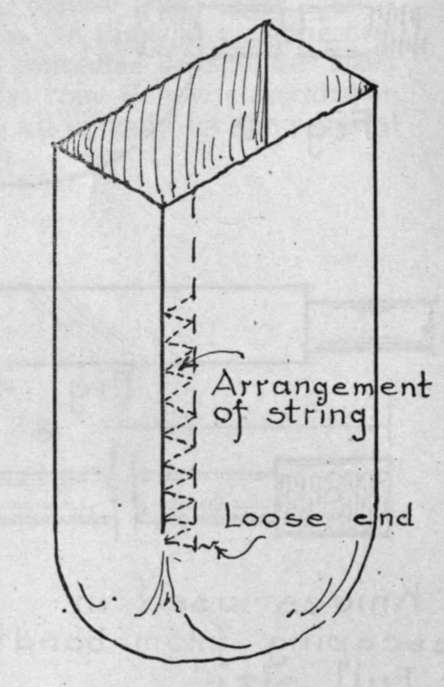 Arrangement
of string
Loose end